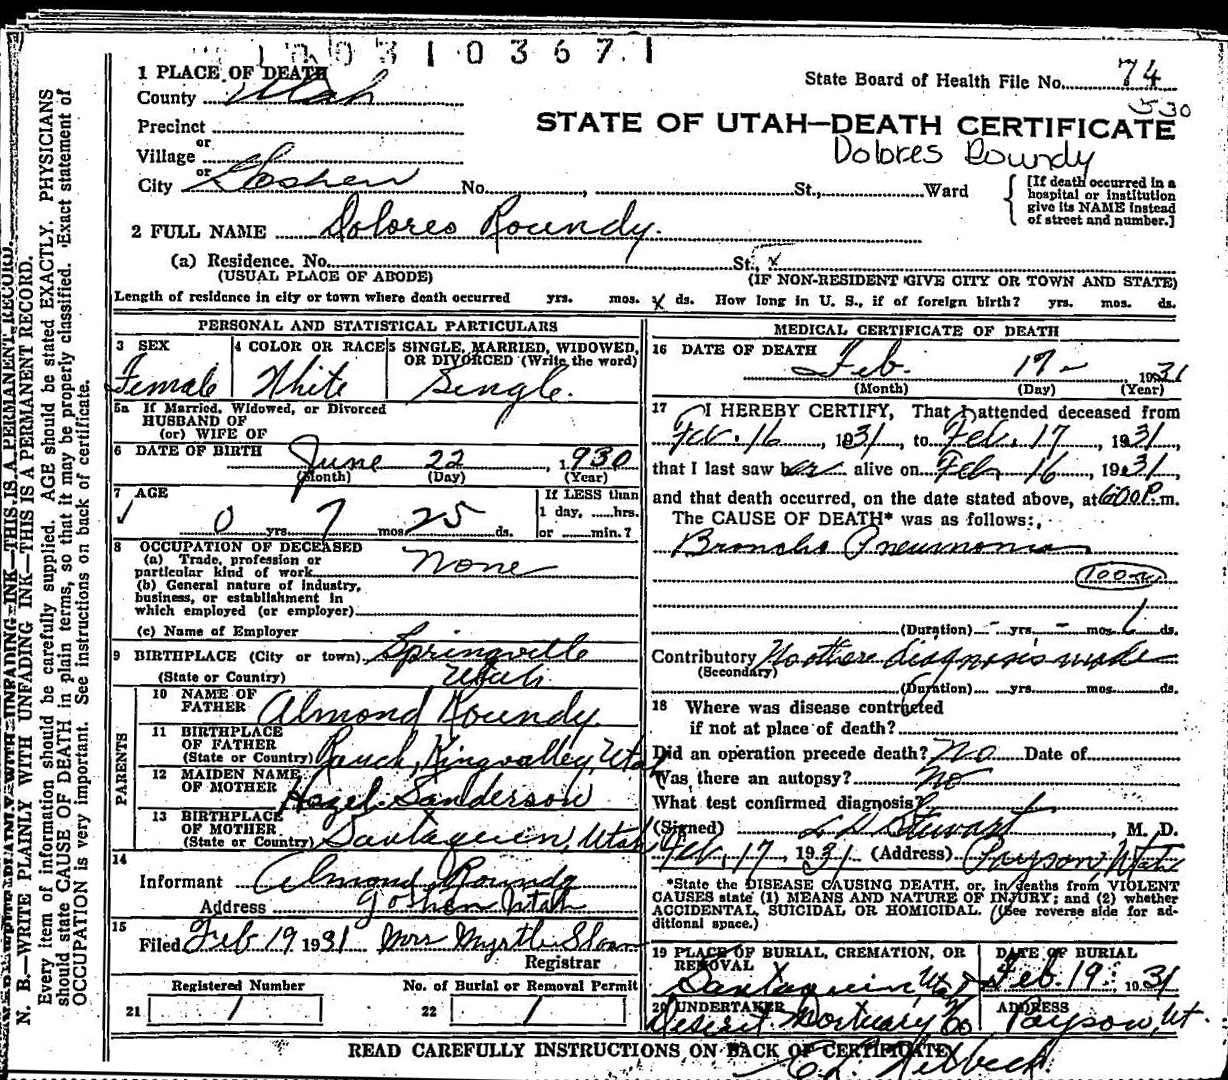 1003103671
1 PLACE OF DEATH
County Utah
State Board of Health File No. 74
530
Precinct
or
Village
or
City Goshen No. , St., Ward
STATE OF UTAH—DEATH CERTIFICATE
Dolores Roundy
[If death occurred in a hospital or institution give its NAME instead of street and number.]
2 FULL NAME Dolores Roundy.
(a) Residence. No. St., x
(USUAL PLACE OF ABODE) (IF NON-RESIDENT GIVE CITY OR TOWN AND STATE)
Length of residence in city or town where death occurred yrs. mos. x ds. How long in U. S., if of foreign birth? yrs. mos. ds.
PERSONAL AND STATISTICAL PARTICULARS
3 SEX
Female
4 COLOR OR RACE
White
5 SINGLE, MARRIED, WIDOWED,
OR DIVORCED (Write the word)
Single.
5a If Married, Widowed, or Divorced
HUSBAND OF
(or) WIFE OF
6 DATE OF BIRTH June 22, 1930
(Month) (Day) (Year)
7 AGE
0 yrs. 7 mos. 25 ds.
If LESS than
1 day, ......hrs.
or ......min.?
8 OCCUPATION OF DECEASED
(a) Trade, profession or
particular kind of work None
(b) General nature of industry,
business, or establishment in
which employed (or employer)
(c) Name of Employer
9 BIRTHPLACE (City or town) Springville
(State or Country) Utah
PARENTS
10 NAME OF
FATHER Almond Roundy
11 BIRTHPLACE
OF FATHER
(State or Country) Ranch, Kingvalley, Utah
12 MAIDEN NAME
OF MOTHER Hazel Sanderson
13 BIRTHPLACE
OF MOTHER
(State or Country) Santaquin, Utah
14
Informant Almond Roundy
Address Goshen Utah
15
Filed Feb 19 1931 Mrs Myrtle Sloan
Registrar
Registered Number No. of Burial or Removal Permit
21 / 22 /
MEDICAL CERTIFICATE OF DEATH
16 DATE OF DEATH Feb. 17- 1931
(Month) (Day) (Year)
17 I HEREBY CERTIFY, That I attended deceased from
Feb. 16, 1931, to Feb. 17, 1931,
that I last saw her alive on Feb 16, 1931,
and that death occurred, on the date stated above, at 6:00 P.m.
The CAUSE OF DEATH* was as follows:
Broncho Pneumonia
(Duration) - yrs. - mos. 1 ds.
Contributory No other diagnosis made
(Secondary)
(Duration) yrs. mos. ds.
18 Where was disease contracted
if not at place of death?
Did an operation precede death? No Date of
Was there an autopsy? No
What test confirmed diagnosis?
(Signed) L D Stewart, M. D.
Feb, 17 1931 (Address) Payson, Utah
*State the DISEASE CAUSING DEATH, or, in deaths from VIOLENT
CAUSES state (1) MEANS AND NATURE OF INJURY; and (2) whether
ACCIDENTAL, SUICIDAL OR HOMICIDAL. (See reverse side for ad-
ditional space.)
19 PLACE OF BURIAL, CREMATION, OR
REMOVAL
Santaquin, Utah
DATE OF BURIAL
Feb. 19. 1931
20 UNDERTAKER
Deserit Mortuary Co
ADDRESS
Payson, Ut.
READ CAREFULLY INSTRUCTIONS ON BACK OF CERTIFICATE
N. B.—WRITE PLAINLY WITH UNFADING INK—THIS IS A PERMANENT RECORD.
Every item of information should be carefully supplied. AGE should be stated EXACTLY. PHYSICIANS
should state CAUSE OF DEATH in plain terms, so that it may be properly classified. Exact statement of
OCCUPATION is very important. See instructions on back of certificate.